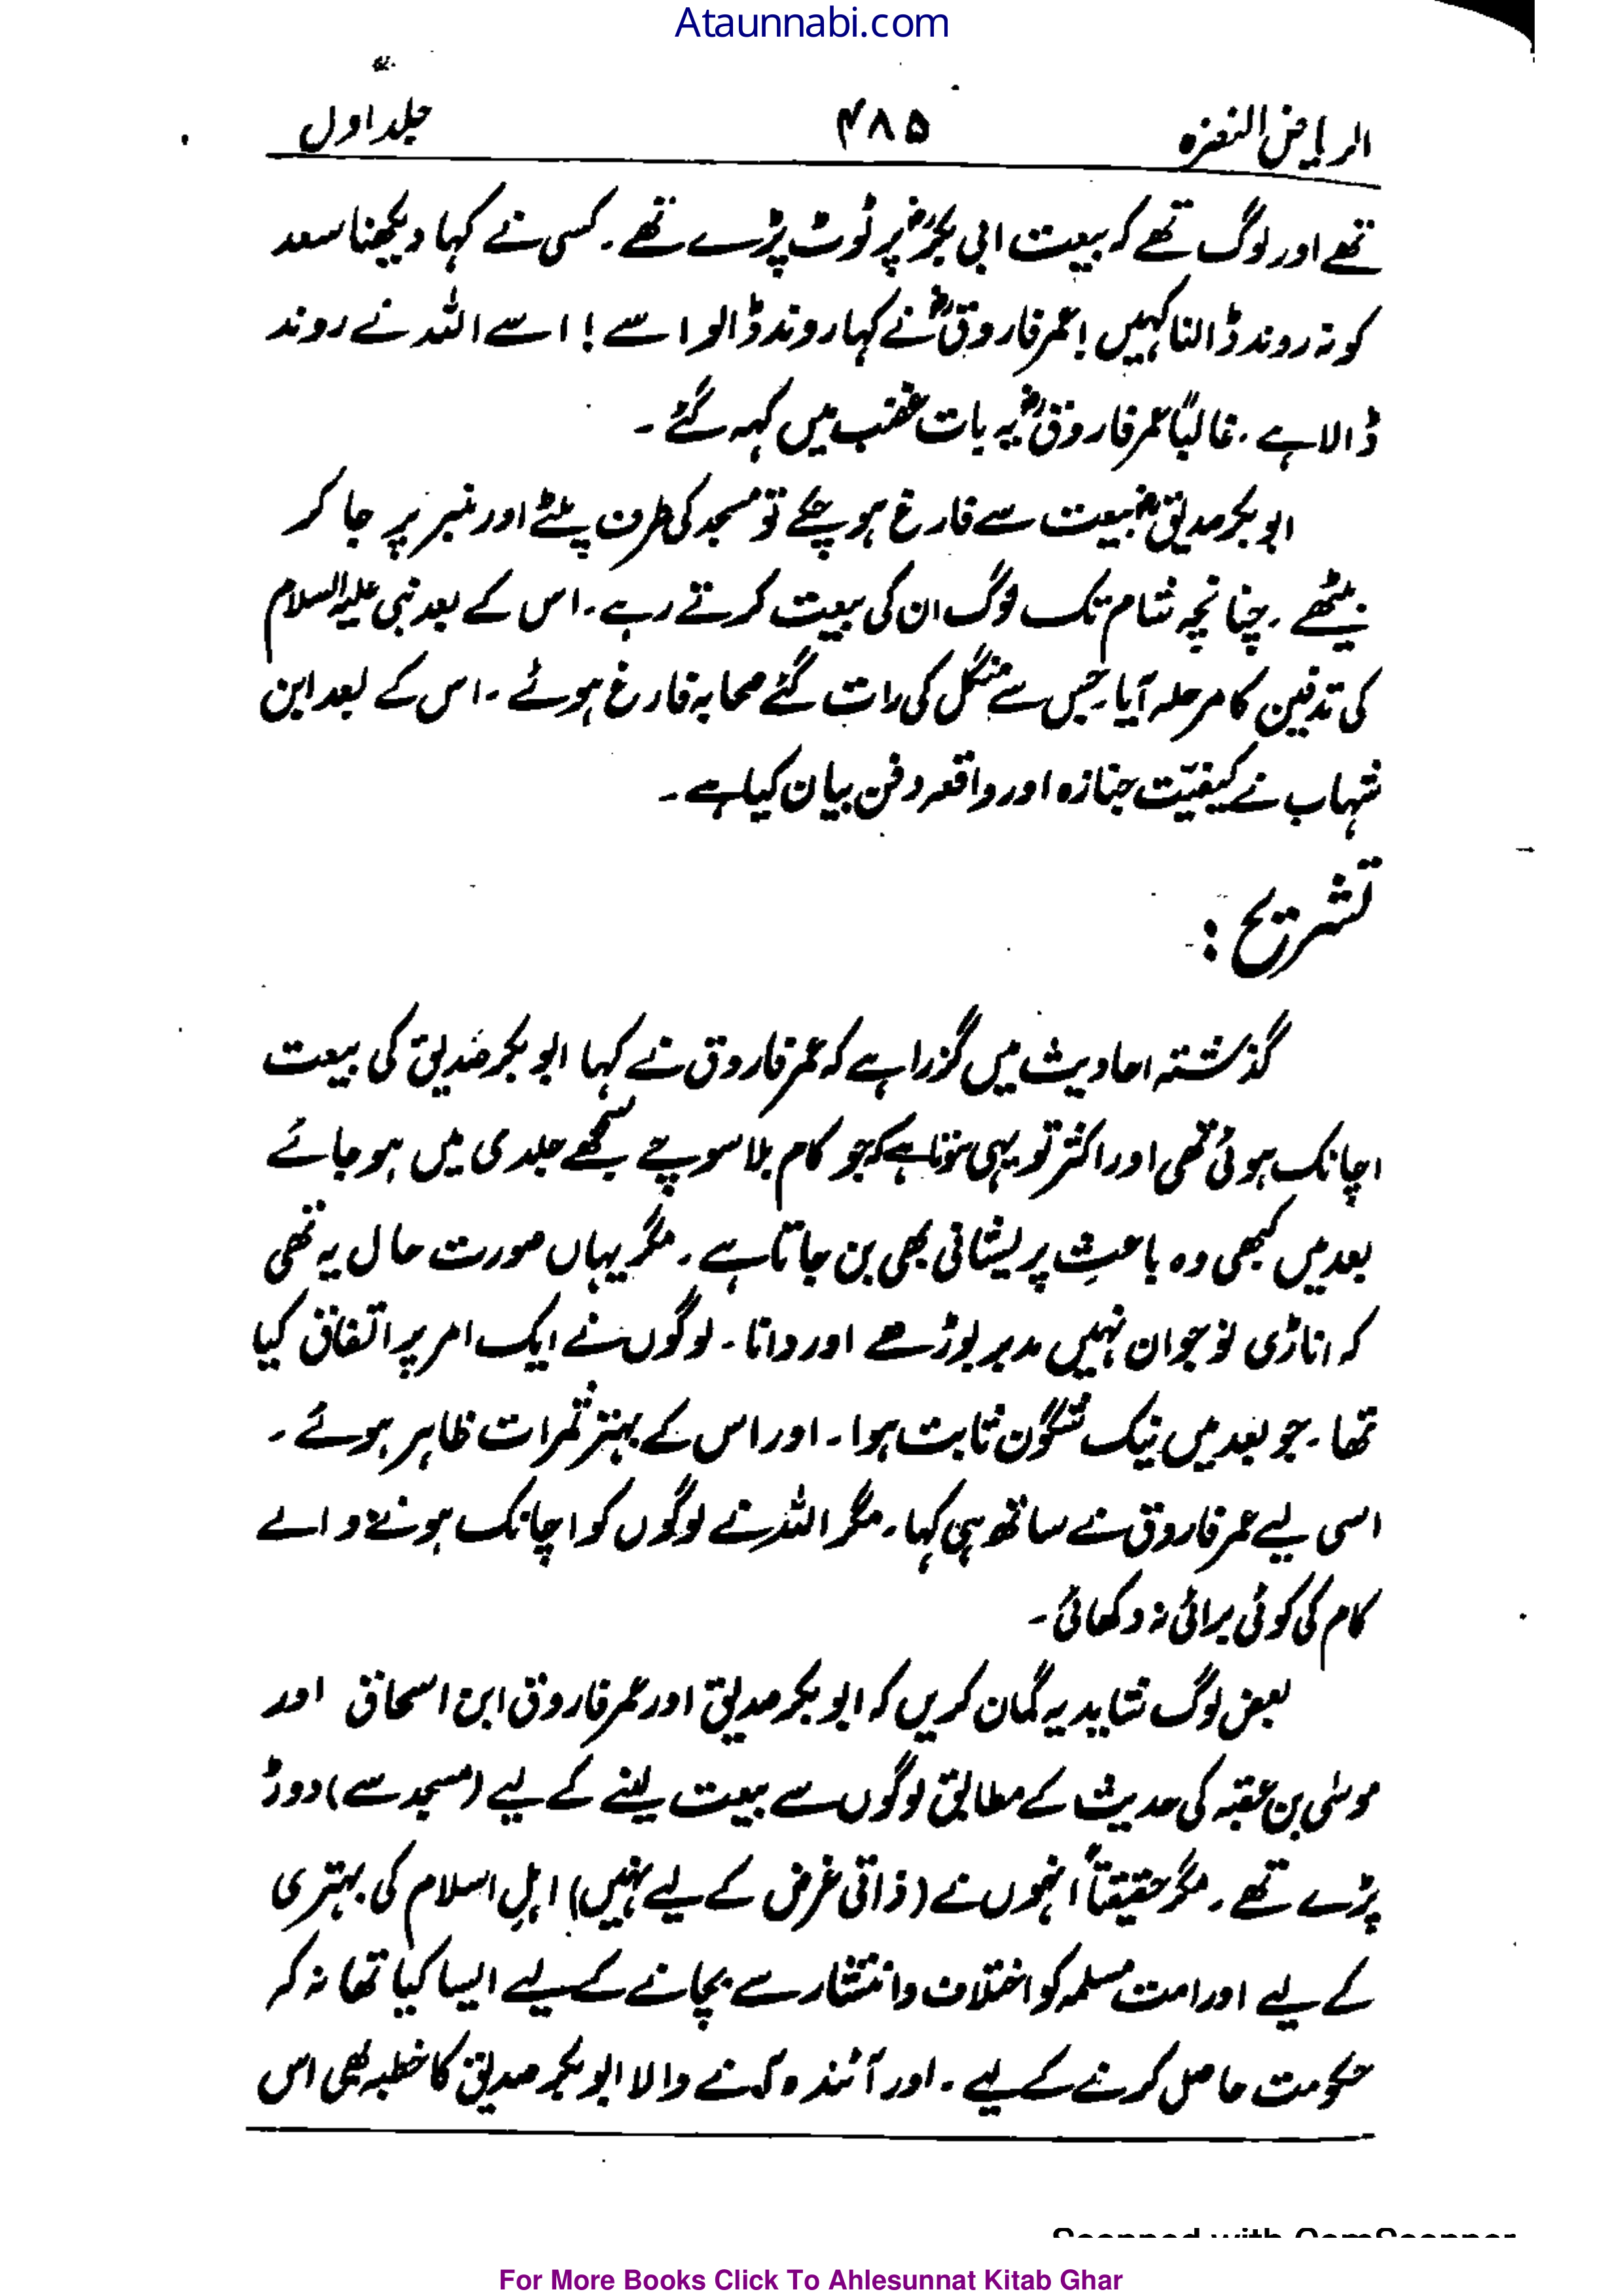 Ataunnabi.com
الریاض النضرہ ۴۸۵ جلد اول
تھے اور لوگ تھے کہ بیعت ابی بکرؓ پر ٹوٹ پڑے تھے۔ کسی نے کہا دیکھنا سعد
کو نہ روند ڈالنا کہیں! عمر فاروقؓ نے کہا روند ڈالو اسے! اسے اللہ نے روند
ڈالا ہے۔ غالباً عمر فاروقؓ یہ بات غضب میں کہہ گئے۔
ابوبکر صدیقؓ بیعت سے فارغ ہو چکے تو مسجد کی طرف پلٹے اور منبر پر جا کر
بیٹھے۔ چنانچہ شام تک لوگ ان کی بیعت کرتے رہے۔ اس کے بعد نبی علیہ السلام
کی تدفین کا مرحلہ آیا۔ جس سے منگل کی رات گئے صحابہ فارغ ہوئے۔ اس کے بعد ابن
شہاب نے کیفیّت جنازہ اور واقعہ دفن بیان کیا ہے۔
تشریح:
گذشتہ احادیث میں گزرا ہے کہ عمر فاروق نے کہا ابوبکر صدیق کی بیعت
اچانک ہوئی تھی اور اکثر تو یہی ہوتا ہے کہ جو کام بلا سوچے سمجھے جلدی میں ہو جائے
بعد میں کبھی وہ باعثِ پریشانی بھی بن جاتا ہے۔ مگر یہاں صورت حال یہ تھی
کہ اناڑی نوجوان نہیں مدبر بوڑھے اور دانا۔ لوگوں نے ایک امر پر اتفاق کیا
تھا۔ جو بعد میں نیک شگون ثابت ہوا۔ اور اس کے بہتر ثمرات ظاہر ہوئے۔
اسی لیے عمر فاروق نے ساتھ ہی کہا۔ مگر اللہ نے لوگوں کو اچانک ہونے والے
کام کی کوئی برائی نہ دکھائی۔
بعض لوگ شاید یہ گمان کریں کہ ابوبکر صدیق اور عمر فاروق ابن اسحاق اور
موسٰی بن عقبہ کی حدیث کے مطابق لوگوں سے بیعت لینے کے لیے (مسجد سے) دوڑ
پڑے تھے۔ مگر حقیقتاً انہوں نے (ذاتی غرض کے لیے نہیں) اہلِ اسلام کی بہتری
کے لیے اور امت مسلمہ کو اختلاف و انتشار سے بچانے کے لیے ایسا کیا تھا نہ کہ
حکومت حاصل کرنے کے لیے۔ اور آئندہ آنے والا ابوبکر صدیق کا خطبہ بھی اس
Scanned with CamScanner
For More Books Click To Ahlesunnat Kitab Ghar